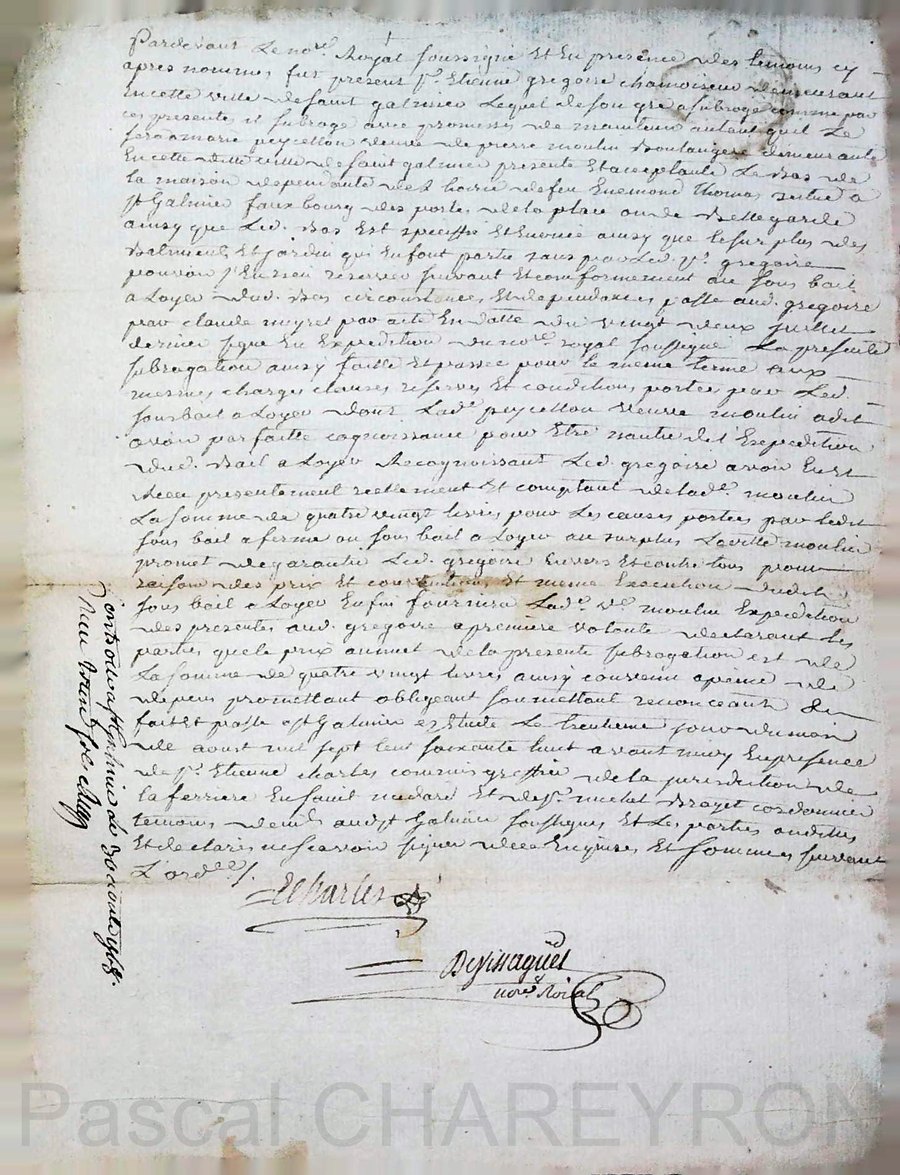 Pardevant Le no.re Royal soussigné Et En présence des temoins cy
après nommes fut present s.r Etienne gregoire chamoiseur demeurant
En cette ville de saint galmier Lequel de son gré a subrogé comme par
ces presente il subroge avec promesses de maintenir autant quil Le
fera marie peycellon veuve de pierre moulin Boulangere demeurante
En cette ville de saint galmier presente Et acceptante Le Bas de
La maison dependante de L'hoirie de feu Enemond Thomas située a
st Galmier fauxbourg des portes de la place ou de Bellegarde
ainsy que Led. Bas Est specifié Et Enoncé ainsy que le surplus des
Batiments Et jardin qui En font partie sans par Led. s.r gregoire
pouvoir s'En rien reserver suivant Et conformement au sous bail
a Loyer dud. Bas circonstances Et dependances passé aud. gregoire
par claude meyret par acte En datte du vingt deux juillet
dernier signé En Expedition du no.re royal soussigné La presente
subrogation ainsy faitte Et passée pour le meme terme aux
memes charges clauses reserves Et conditions portés par Led
sous bail a Loyer dont Lad.e peycellon veuve moulin a dit
avoir parfaitte cognoissance pour Etre nantie de L'Expedition
dud. Bail a Loyer Recognoissant Led. gregoire avoir Eu Et
Receu presentement reellement Et comptant de lad.e moulin
La somme de quatre vingt livres pour Les causes portées par ledit
sous bail a ferme ou sous bail a Loyer au surplus Laditte moulin
promet de garantir Led. gregoire Envers Et contre tous pour
raison des prix Et et meme Execution dudit
sous bail a Loyer Enfin fournira Lad.e v.e moulin Expedition
des presentes aud. gregoire a premiere volonté declarant Les
parties que le prix annuel de la presente subrogation est de
La somme de quatre vingt livres ainsy convenu a peine de
depens promettant obligeant soumettant renonceant
fait Et passé a st Galmier Etude Le trentieme jour du mois
de aoust mil sept Cent soixante huit avant midy En presence
de s.r Etienne charles commis greffier de la jurisdiction de
La ferriere En saint medard Et de s.r michel Brayet cordonnier
temoins aud st Galmier soussignes Et Les parties ont dittes
Et declarés ne scavoir signer de ce Enquises Et sommés suivant
L'ord.ce /.
E Charles
Deyssaguët
no.re Roial
Controllé a st galmier Le 30 aoust 1768.
Receu vingt sols
Pascal CHAREYRON